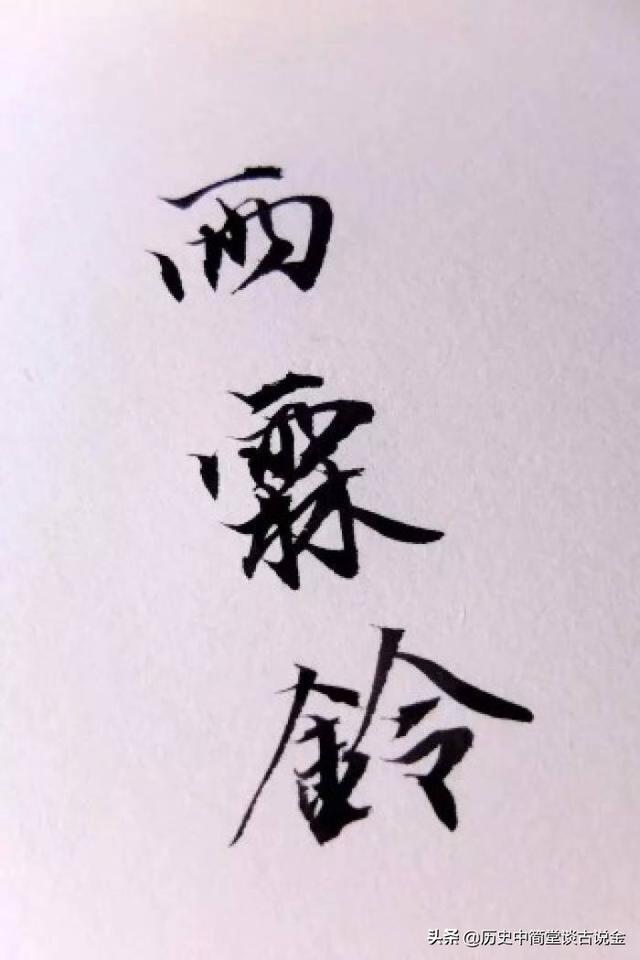 雨
霖
鈴
头条 @历史中简堂谈古说金